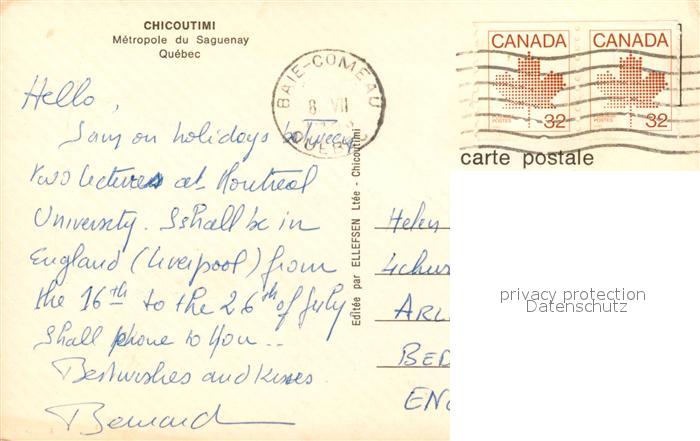 CHICOUTIMI
Métropole du Saguenay
Québec
BAIE-COMEAU
8 VII
QUEBEC
CANADA CANADA
POSTES 32 POSTES 32
carte postale
Hello,
I am on holidays between
two lectures at Montreal
University. I shall be in
England (Liverpool) from
the 16th to the 26th of July
I shall phone to You...
Best wishes and Kisses.
Bernard
Editée par ELLEFSEN Ltée - Chicoutimi
Helen
4 chur
ARL
BED
ENG
privacy protection
Datenschutz